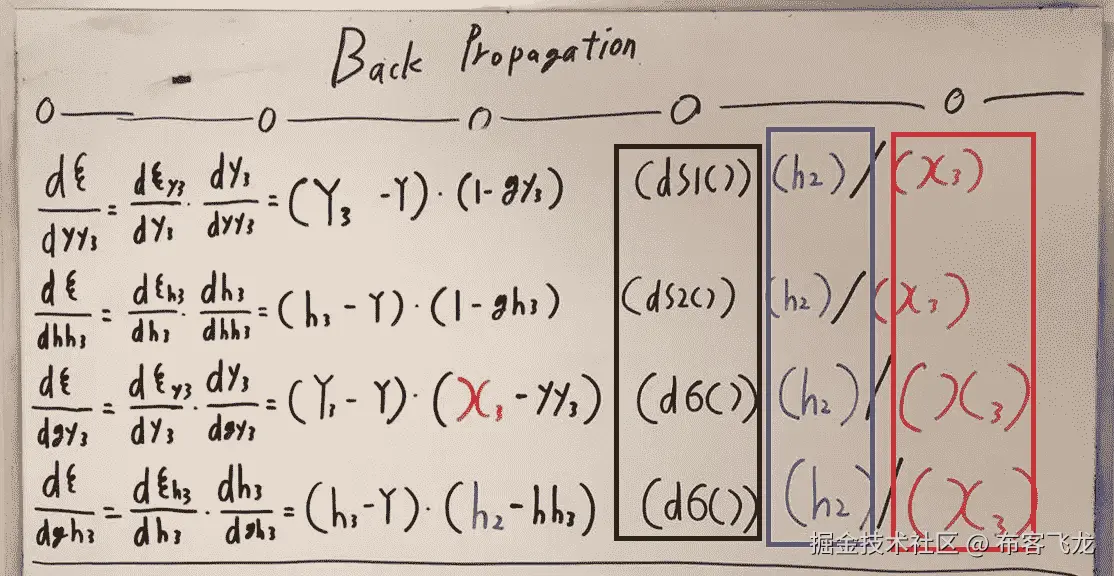 Back Propagation
dξ/dyy₃ = dξy₃/dy₃ · dy₃/dyy₃ = (Y₃ - Y) · (1 - gy₃) (dS1()) (h₂) / (X₃)
dξ/dhh₃ = dξh₃/dh₃ · dh₃/dhh₃ = (h₃ - Y) · (1 - gh₃) (dS2()) (h₂) / (X₃)
dξ/dgy₃ = dξy₃/dy₃ · dy₃/dgy₃ = (Y₃ - Y) · (X₃ - yy₃) (d6()) (h₂) / (X₃)
dξ/dgh₃ = dξh₃/dh₃ · dh₃/dgh₃ = (h₃ - Y) · (h₂ - hh₃) (d6()) (h₂) / (X₃)
掘金技术社区 @ 布客飞龙